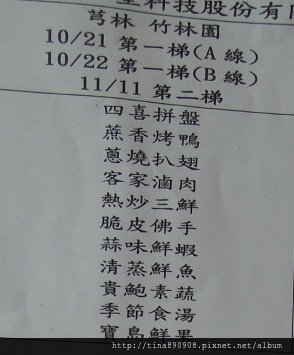 科技股份有
芎林 竹林園
10/21 第一梯(A 線)
10/22 第一梯(B 線)
11/11 第二梯
四喜拼盤
蔗香烤鴨
蔥燒扒翅
客家滷肉
熱炒三鮮
脆皮佛手
蒜味鮮蝦
清蒸鮮魚
貴鮑素蔬
季節食湯
寶島鮮果
http://tina890908.pixnet.net/album